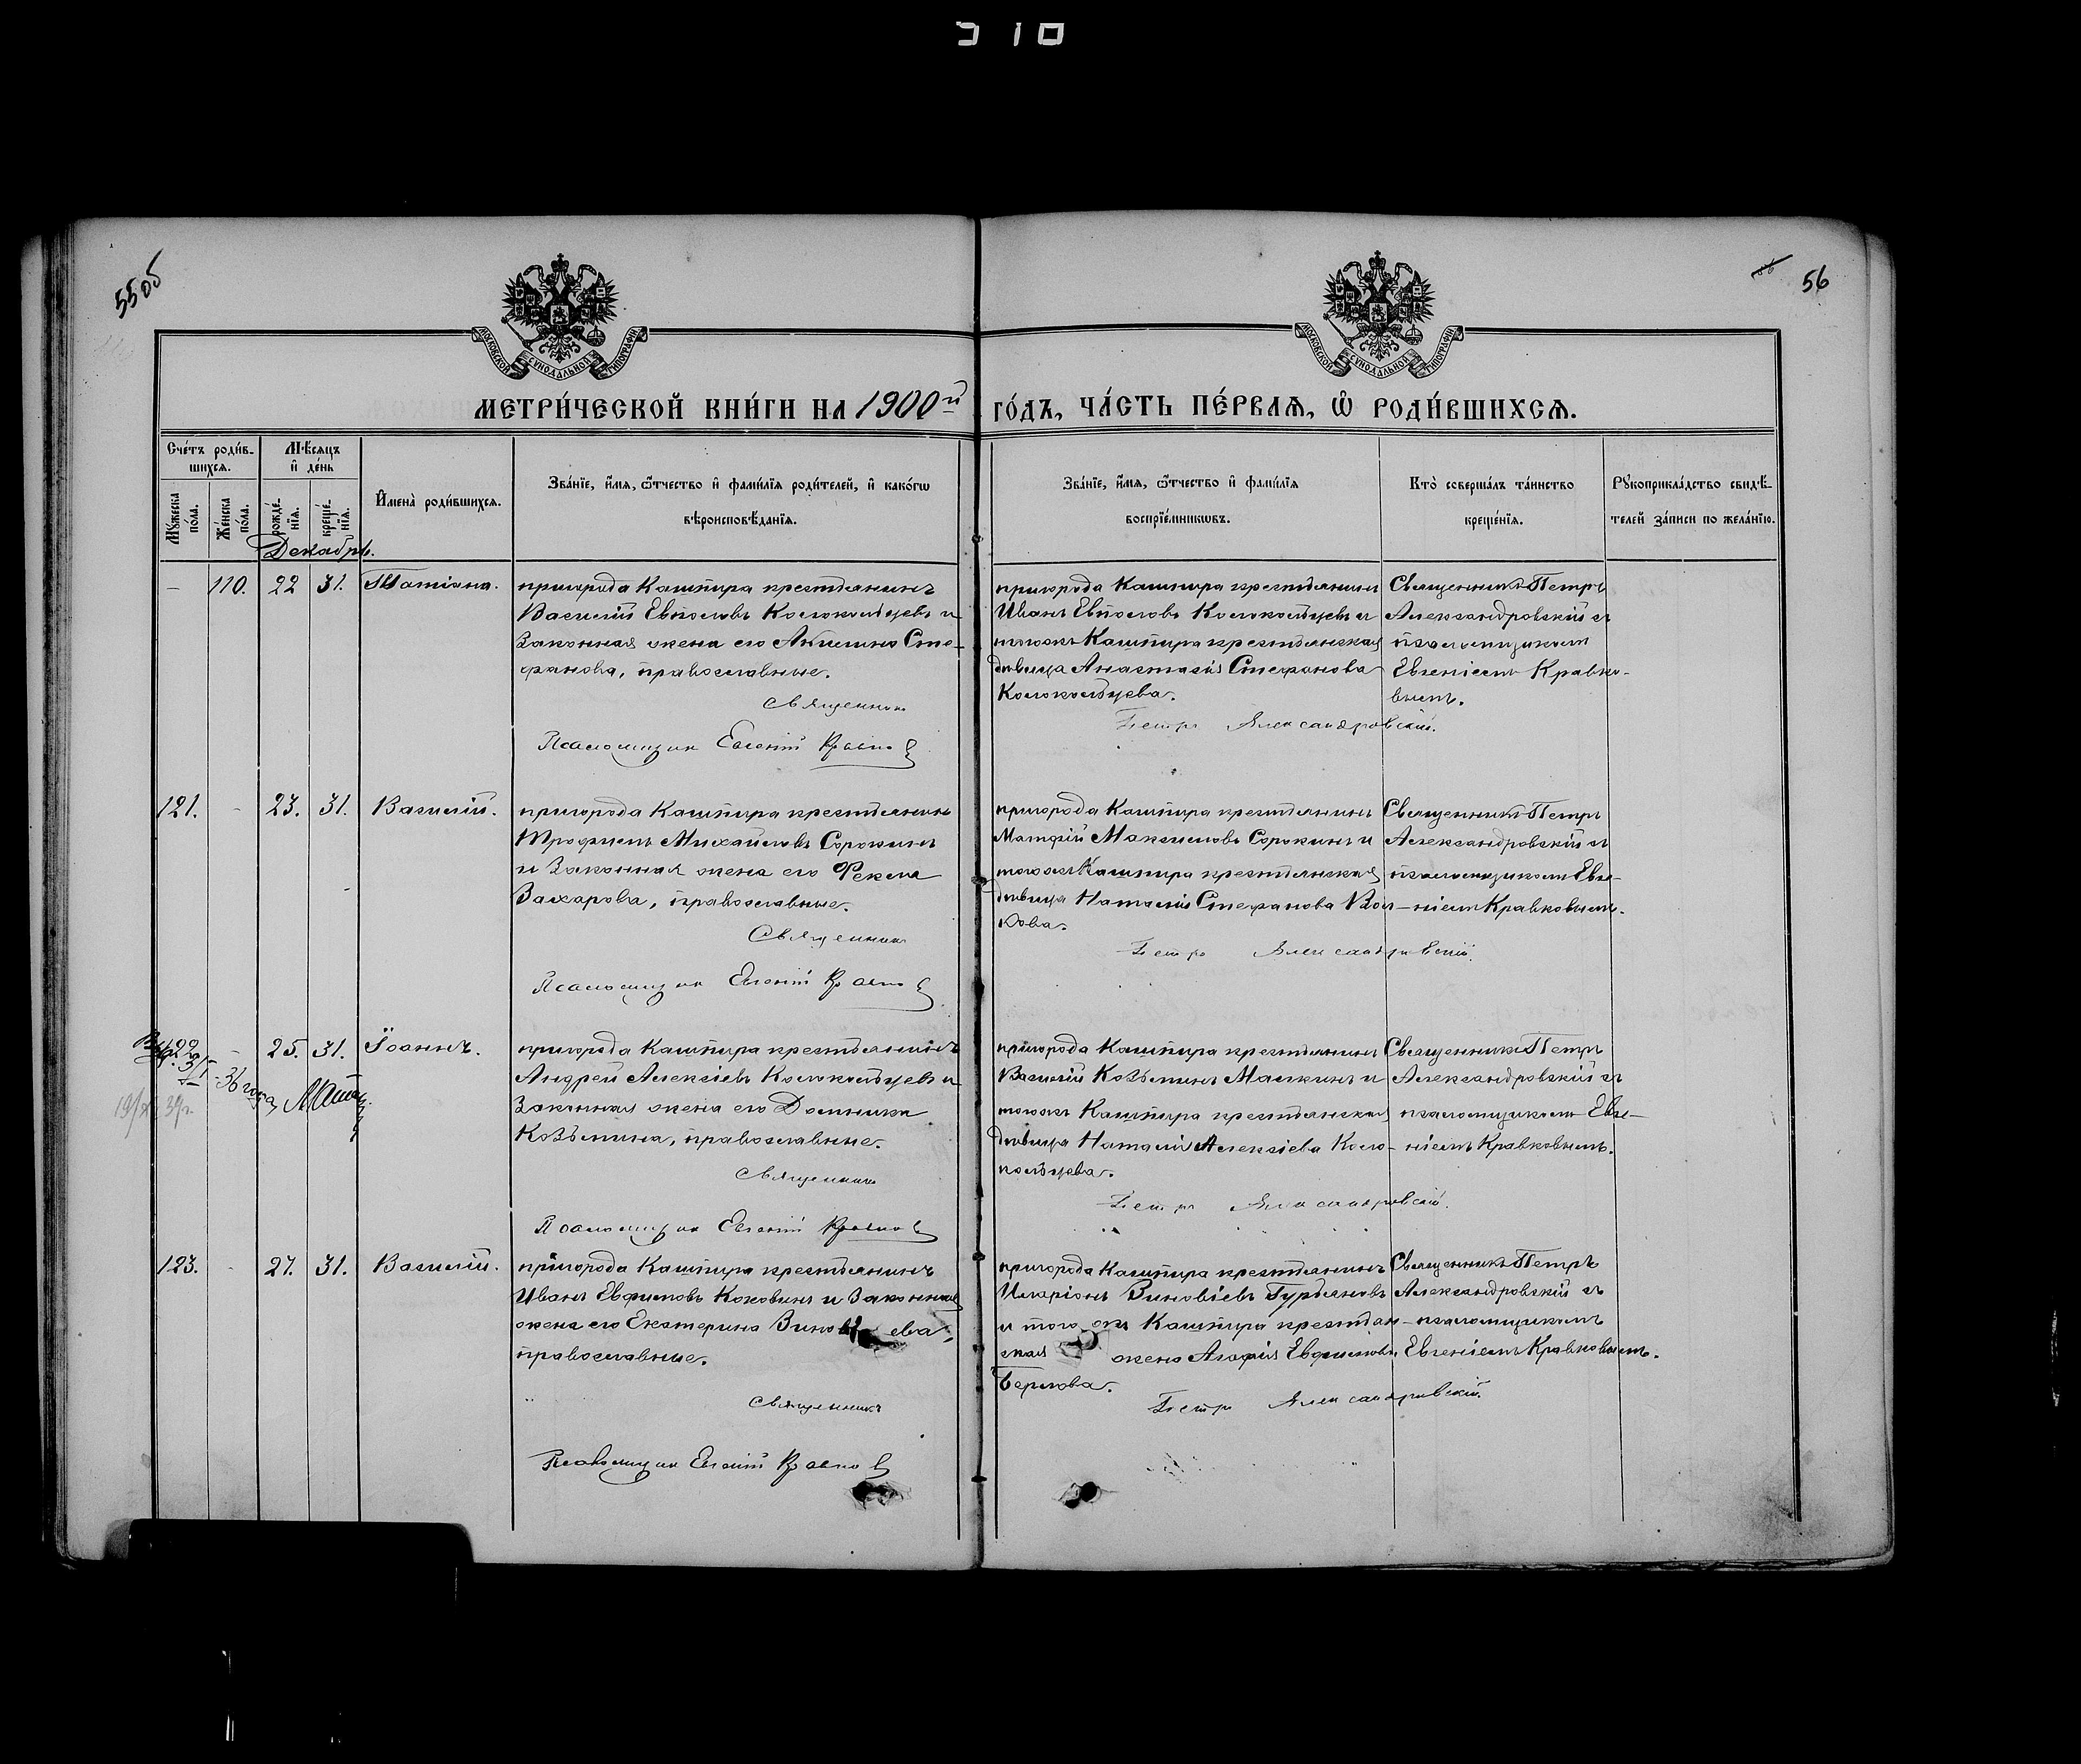 310
55об
56
МОСКОВСКОЙ СѴНОДАЛЬНОЙ ТИПОГРАФІИ
МОСКОВСКОЙ СѴНОДАЛЬНОЙ ТИПОГРАФІИ
МЕТРИ́ЧЕСКОЙ КНИ́ГИ НА 1900й ГО́ДЪ, ЧА́СТЬ ПЕ́РВАѦ, Ѡ҆ РОДИ́ВШИХСѦ.
Сче́тъ роди́в-
шихсѧ.
Мѣ́сѧцъ
и҆ де́нь
Мꙋ́жеска по́ла.
Же́нска по́ла.
рожде́-нїѧ.
креще́-нїѧ.
И҆мена̀ роди́вшихсѧ.
Зва́нїе, и҆́мѧ, ѻ҆́тчество и҆ фами́лїѧ роди́телей, и҆ како́гѡ
вѣроисповѣ́данїѧ.
Зва́нїе, и҆́мѧ, ѻ҆́тчество и҆ фами́лїѧ
воспрїе́мникѡвъ.
Кто̀ соверша́лъ та́инство
креще́нїѧ.
Рꙋкоприкла́дство свидѣ́-
телей за́писи по жела́нїю.
Декабрь.
- 110. 22 31. Татіана.
пригорода Кашпира крестьянинъ
Василій Евпловъ Колокольцевъ и
законная жена его Акилина Сте-
фанова, православные.
Священник
Псаломщик Евгений Кравков
пригорода Кашпира крестьянинъ
Иванъ Евпловъ Колокольцевъ и
тогожъ Кашпира крестьянская
дѣвица Анастасія Стефанова
Колокольцева.
Петр Александровский.
Священникъ Петръ
Александровскій съ
псаломщикомъ
Евгеніемъ Кравко-
вымъ.
121. - 23. 31. Василій.
пригорода Кашпира крестьянинъ
Трофимъ Михайловъ Сорокинъ
и законная жена его Фекла
Захарова, православные.
Священник
Псаломщик Евгений Кравков
пригорода Кашпира крестьянинъ
Матфій Максимовъ Сорокинъ и
тогожъ Кашпира крестьянская
дѣвица Наталія Стефанова Вол-
кова.
Петр Александровский.
Священникъ Петръ
Александровскій съ
псаломщикомъ Евге-
ніемъ Кравковымъ.
122 - 25. 31. Іоаннъ.
36 года
пригорода Кашпира крестьянинъ
Андрей Алексіевъ Колокольцевъ и
законная жена его Домника
Козьмина, православные.
Священник
Псаломщик Евгений Кравков
пригорода Кашпира крестьянинъ
Василій Козьминъ Малкинъ и
тогожъ Кашпира крестьянская
дѣвица Наталія Алексіева Коло-
кольцева.
Петр Александровский.
Священникъ Петръ
Александровскій съ
псаломщикомъ Евге-
ніемъ Кравковымъ.
123. - 27. 31. Василій.
пригорода Кашпира крестьянинъ
Иванъ Евфимовъ Коковинъ и законная
жена его Екатерина Зиновіева,
православные.
Священникъ
Псаломщик Евгений Кравков
пригорода Кашпира крестьянинъ
Иларіонъ Зиновіевъ Гурьяновъ
и того жъ Кашпира крестьян-
ская жена Агафія Евфимова
Петр Александровский.
Священникъ Петръ
Александровскій съ
псаломщикомъ
Евгеніемъ Кравковымъ.